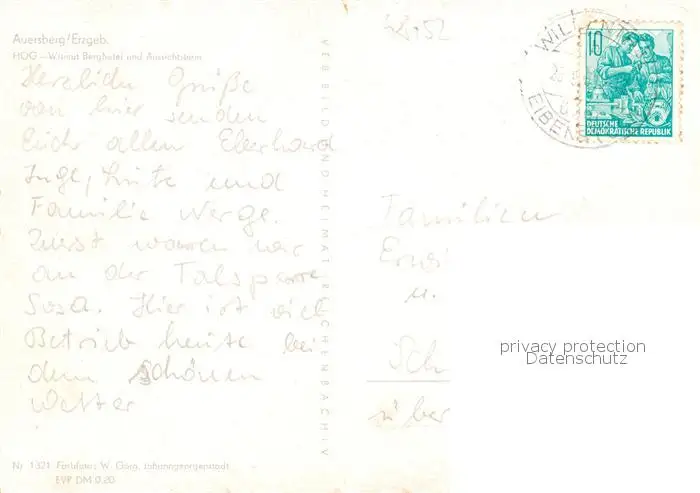 Auersberg/Erzgeb.
HOG — Wismut Berghotel und Aussichtsturm
Herzliche Grüße
von hier senden
Euch allen Eberhard
Inge, und
Familie Werge.
Zuerst waren wir
an der Talsperre
Sosa. Hier ist viel
Betrieb heute bei
dem schönen
Wetter
Nr. 1321 Farbfoto: W. Görg, Johanngeorgenstadt
EVP DM 0,20
VEB BILD UND HEIMAT REICHENBACH I V
10
DEUTSCHE
DEMOKRATISCHE REPUBLIK
EIBENS
Familien
u.
Sch
über
privacy protection
Datenschutz